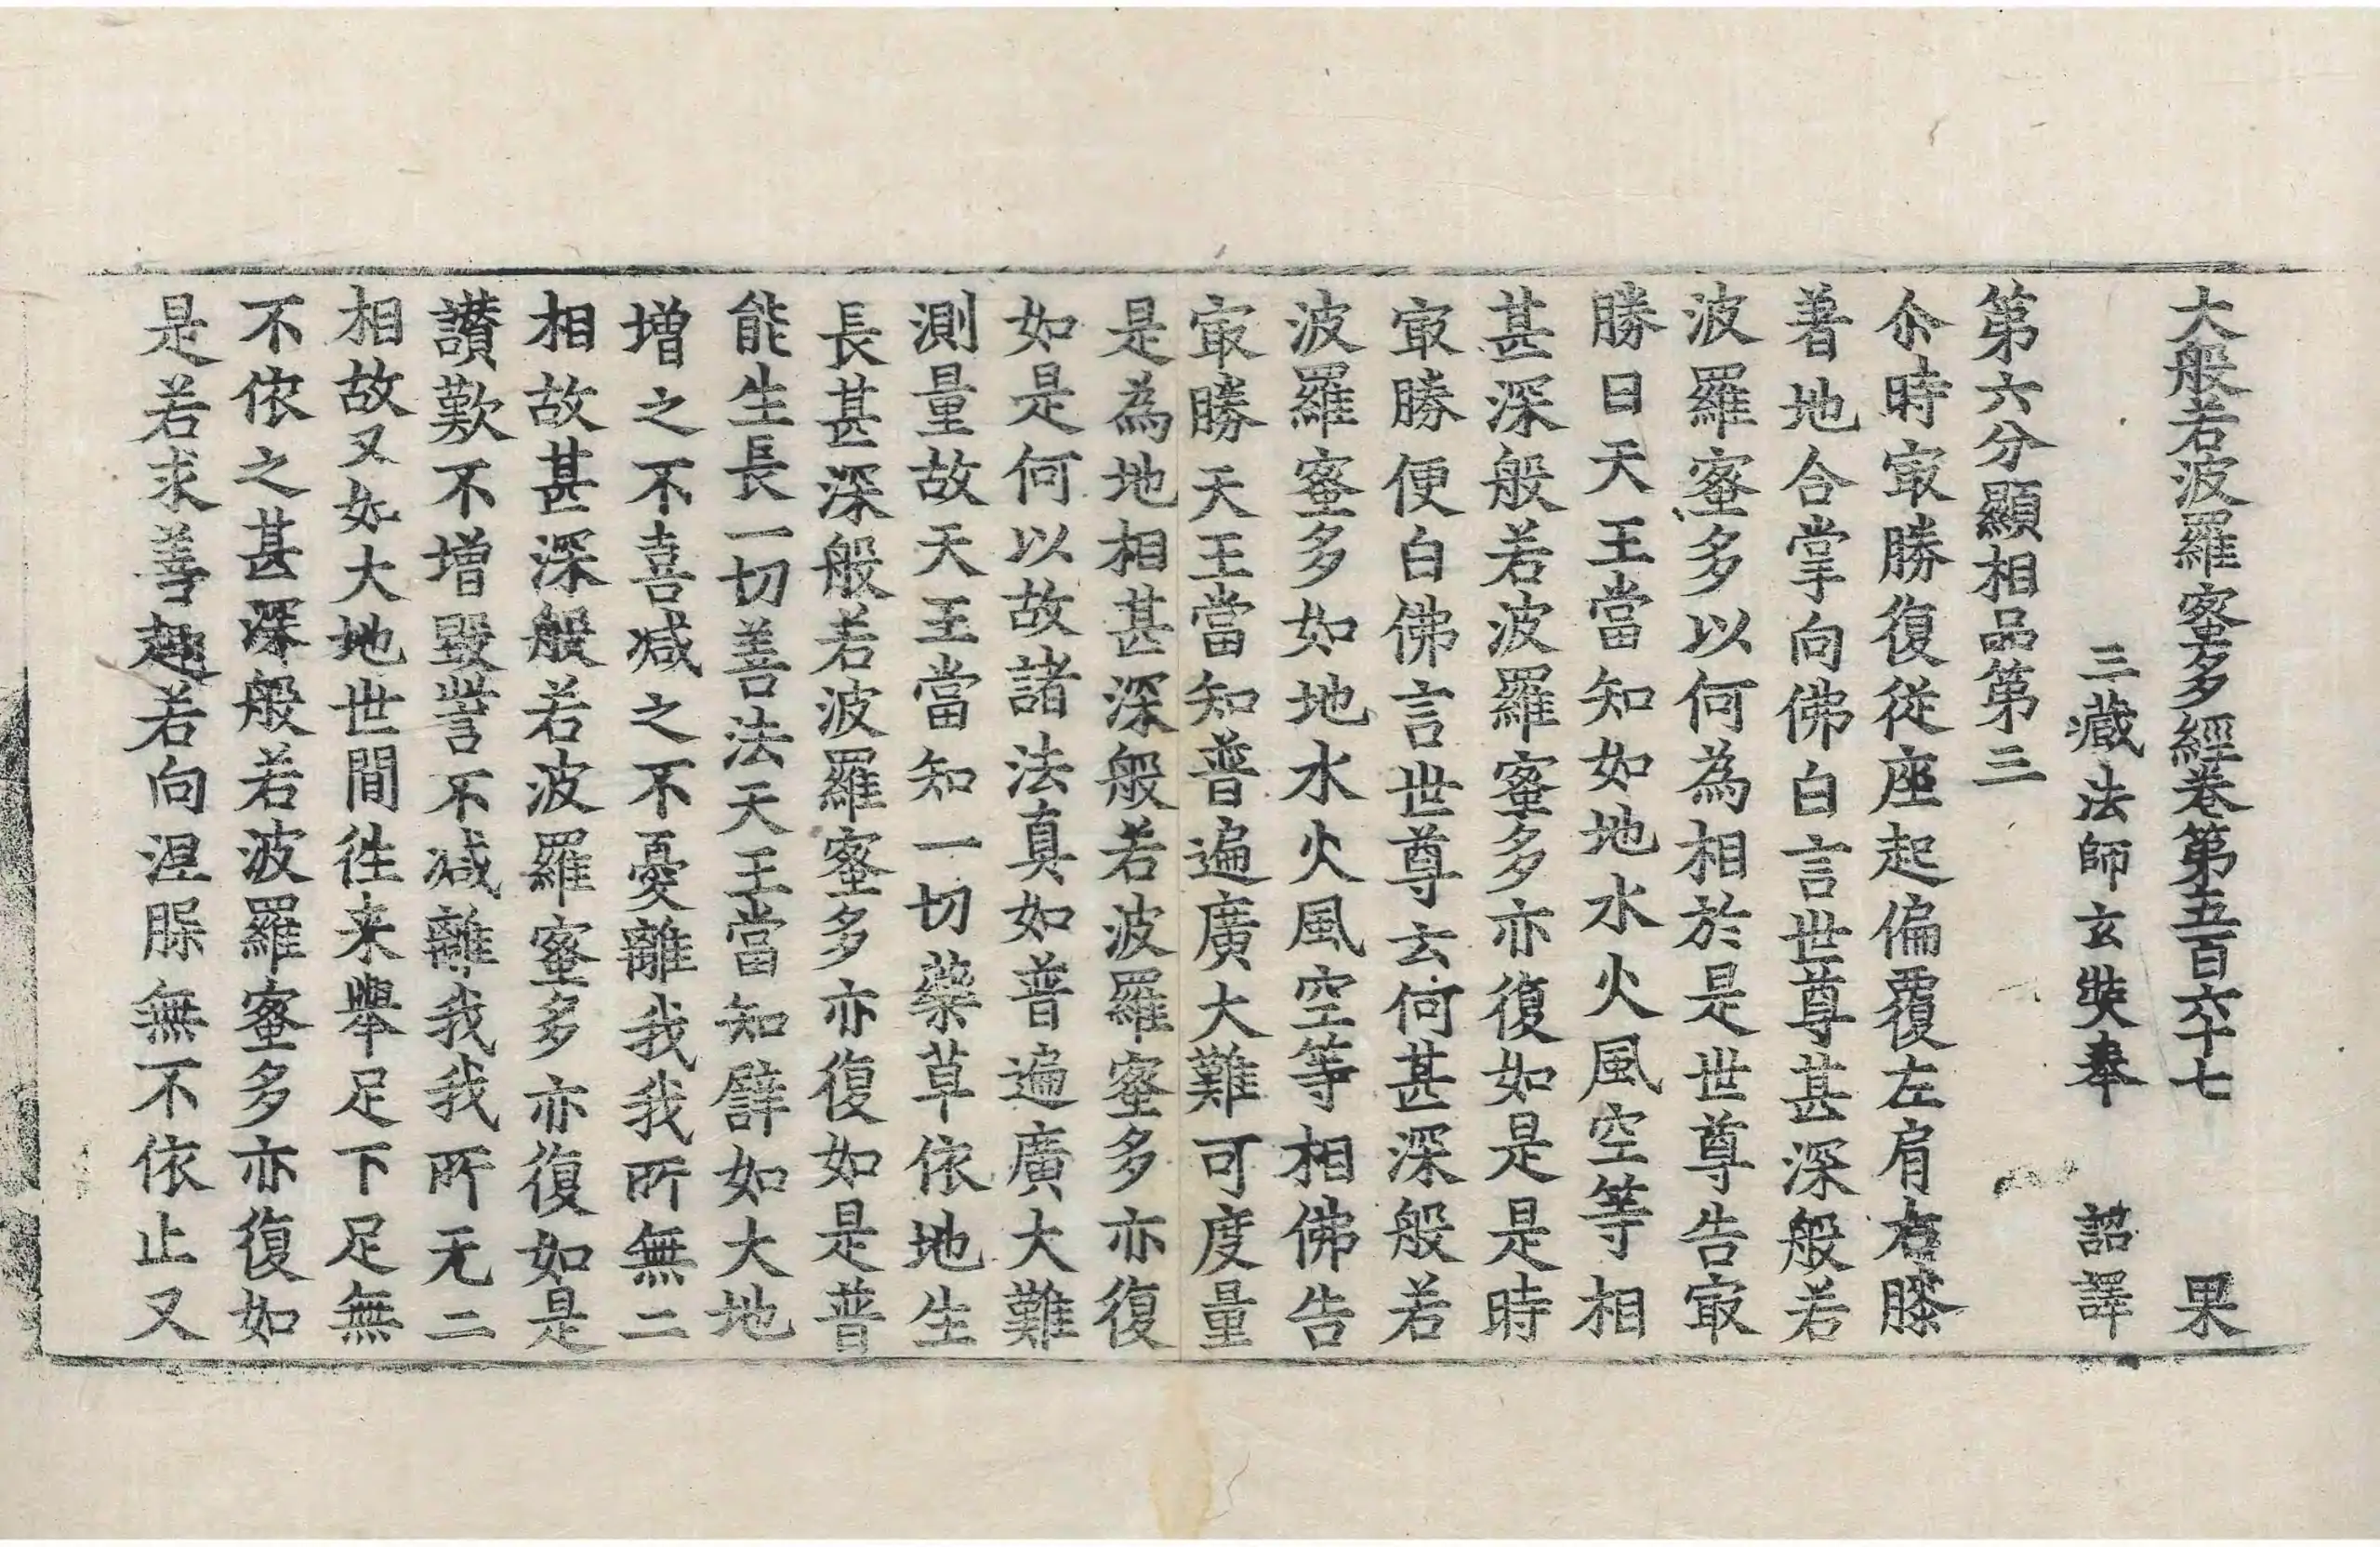 大般若波羅蜜多經卷第五百六十七　果
三藏法師玄奘奉　詔譯
第六分顯相品第三
尒時㝡勝復從座起偏覆左肩右膝
著地合掌向佛白言世尊甚深般若
波羅蜜多以何為相於是世尊告㝡
勝曰天王當知如地水火風空等相
甚深般若波羅蜜多亦復如是是時
㝡勝便白佛言世尊玄何甚深般若
波羅蜜多如地水火風空等相佛告
㝡勝天王當知普遍廣大難可度量
是為地相甚深般若波羅蜜多亦復
如是何以故諸法真如普遍廣大難
測量故天王當知一切藥草依地生
長甚深般若波羅蜜多亦復如是普
能生長一切善法天王當知譬如大地
增之不喜減之不憂離我我所無二
相故甚深般若波羅蜜多亦復如是
讃歎不增毀訾不減離我我所无二
相故又如大地世間徃来舉足下足無
不依之甚深般若波羅蜜多亦復如
是若求善趣若向涅槃無不依止又